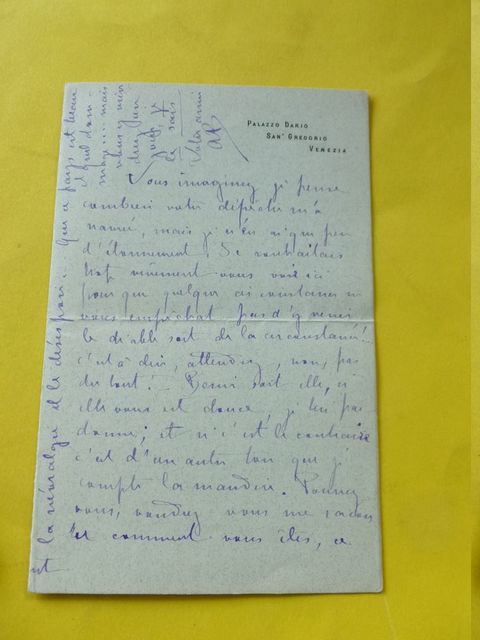 PALAZZO DARIO
SAN GREGORIO
VENEZIA
Vous imaginez, je pense
combien votre dépêche m'a
navré, mais je n'en ai qu'un peu
d'étonnement. Je souhaitais
trop vivement vous voir ici
pour que quelque circonstance ne
vous empêchât pas d'y venir
le diable soit de la circonstance!...
c'est à dire, attendez, non, pas
du tout! Bénie soit elle, si
elle vous est douce, je lui pardonne
et si c'est le contraire
c'est d'un autre ton que je
compte la maudire. Pouvez
vous, voudrez vous me
et comment vous êtes, ce
la névralgie et le désespoir. Que ce pays est beau
et quel dommage... mais
vous y viendrez un
jour, je
le sais
Votre ami